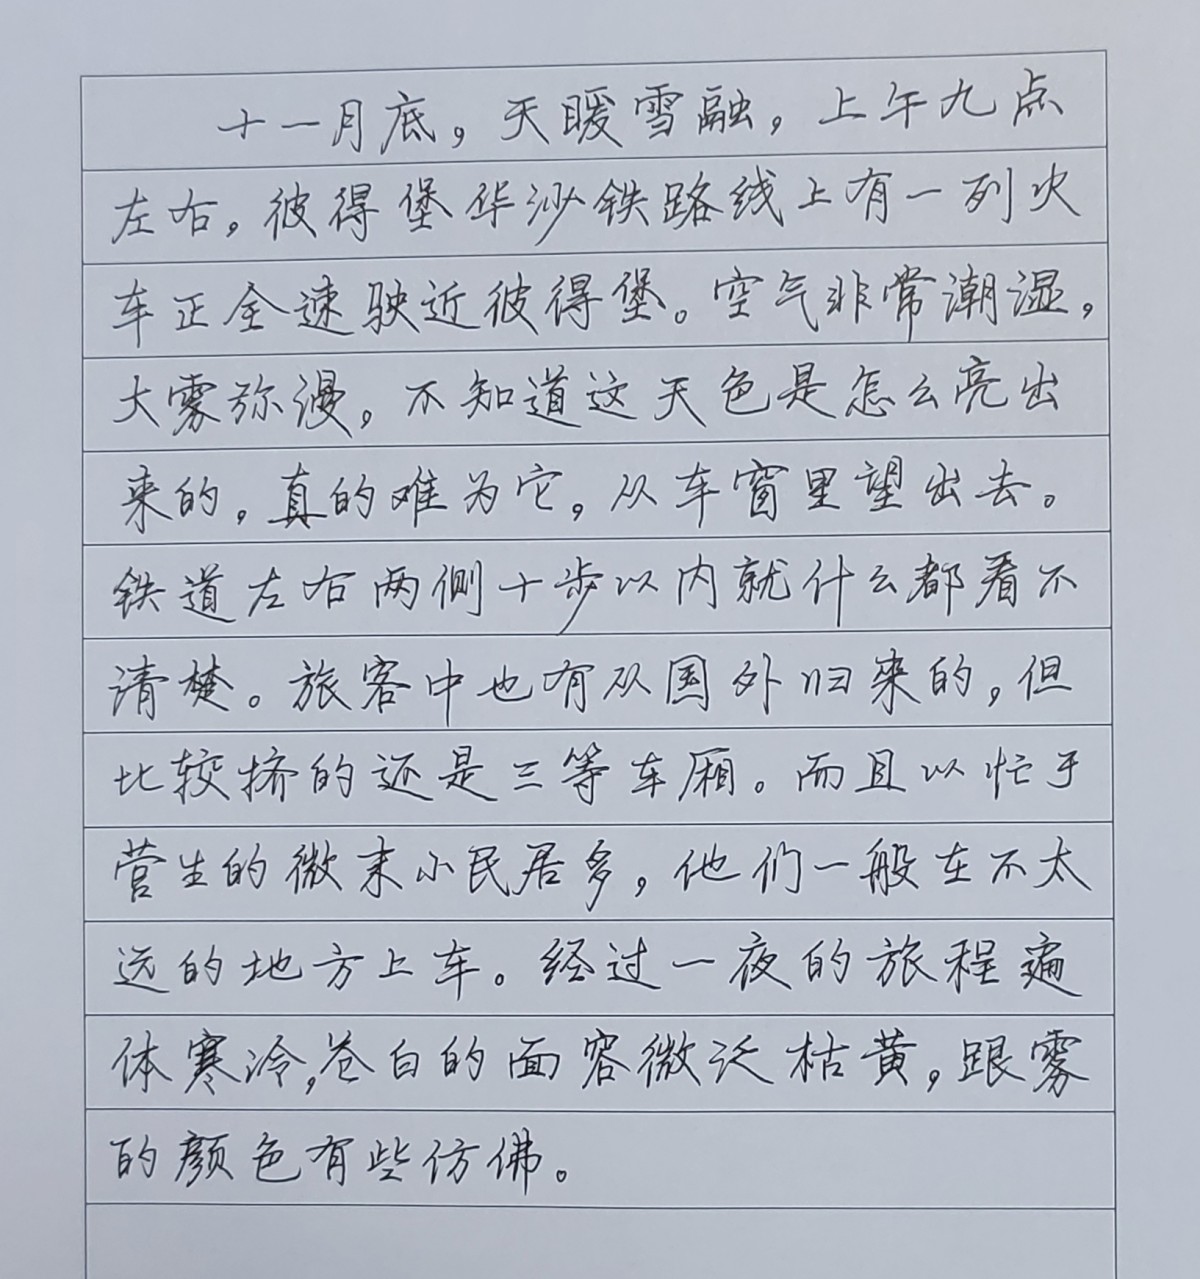 十一月底，天暖雪融，上午九点
左右，彼得堡华沙铁路线上有一列火
车正全速驶近彼得堡。空气非常潮湿，
大雾弥漫，不知道这天色是怎么亮出
来的，真的难为它，从车窗里望出去。
铁道左右两侧十步以内就什么都看不
清楚。旅客中也有从国外归来的，但
比较挤的还是三等车厢。而且以忙于
营生的微末小民居多，他们一般在不太
远的地方上车。经过一夜的旅程遍
体寒冷，苍白的面容微泛枯黄，跟雾
的颜色有些仿佛。